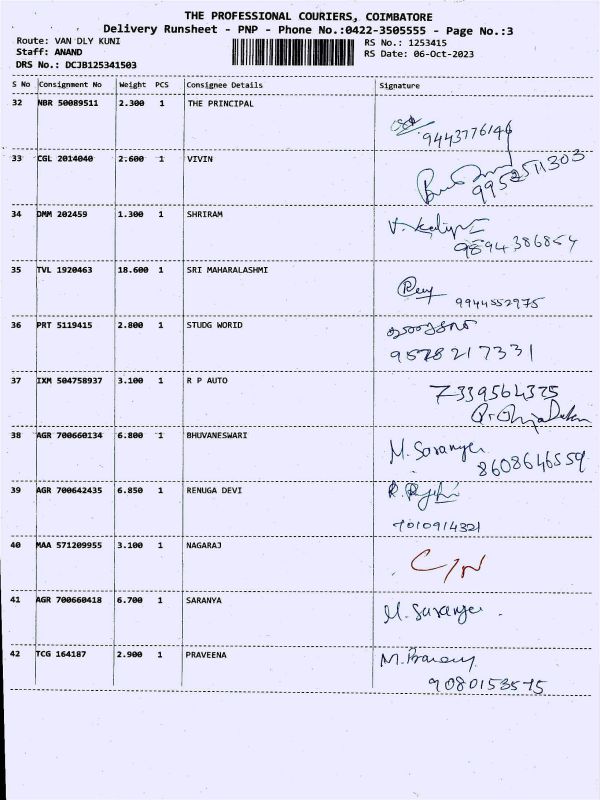 THE PROFESSIONAL COURIERS, COIMBATORE
Delivery Runsheet - PNP - Phone No.:0422-3505555 - Page No.:3
Route: VAN DLY KUNI
RS No.: 1253415
Staff: ANAND
RS Date: 06-Oct-2023
DRS No.: DCJB125341503
S No Consignment No Weight PCS Consignee Details Signature
32 NBR 50089511 2.300 1 THE PRINCIPAL
9443776146
33 CGL 2014040 2.600 1 VIVIN
9952511303
34 DMM 202459 1.300 1 SHRIRAM
9894386854
35 TVL 1920463 18.600 1 SRI MAHARALASHMI
9944552975
36 PRT 5119415 2.800 1 STUDG WORID
9578217331
37 IXM 504758937 3.100 1 R P AUTO
7339564375
38 AGR 700660134 6.800 1 BHUVANESWARI
M. Saranya
8608646559
39 AGR 700642435 6.850 1 RENUGA DEVI
7010914321
40 MAA 571209955 3.100 1 NAGARAJ
C/N
41 AGR 700660418 6.700 1 SARANYA
M. Saranya
42 TCG 164187 2.900 1 PRAVEENA
9080153575